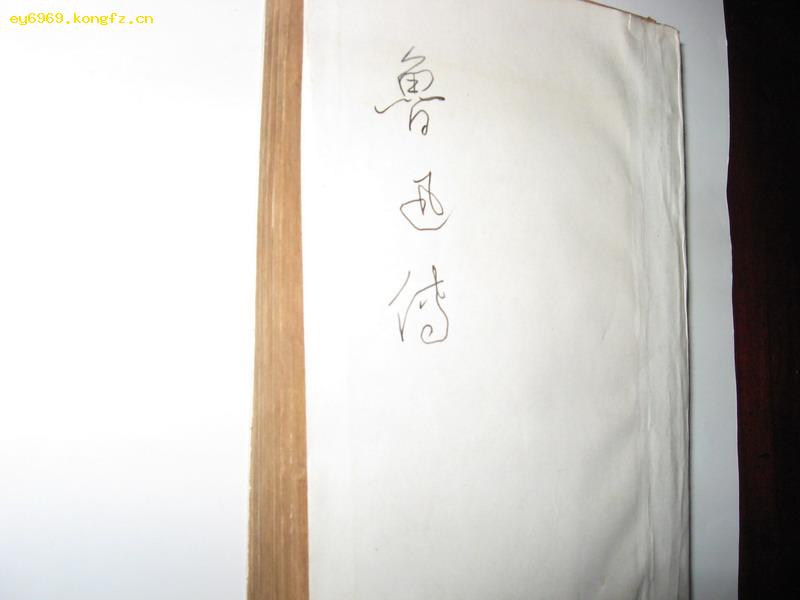 ey6969.kongfz.cn
魯迅傳